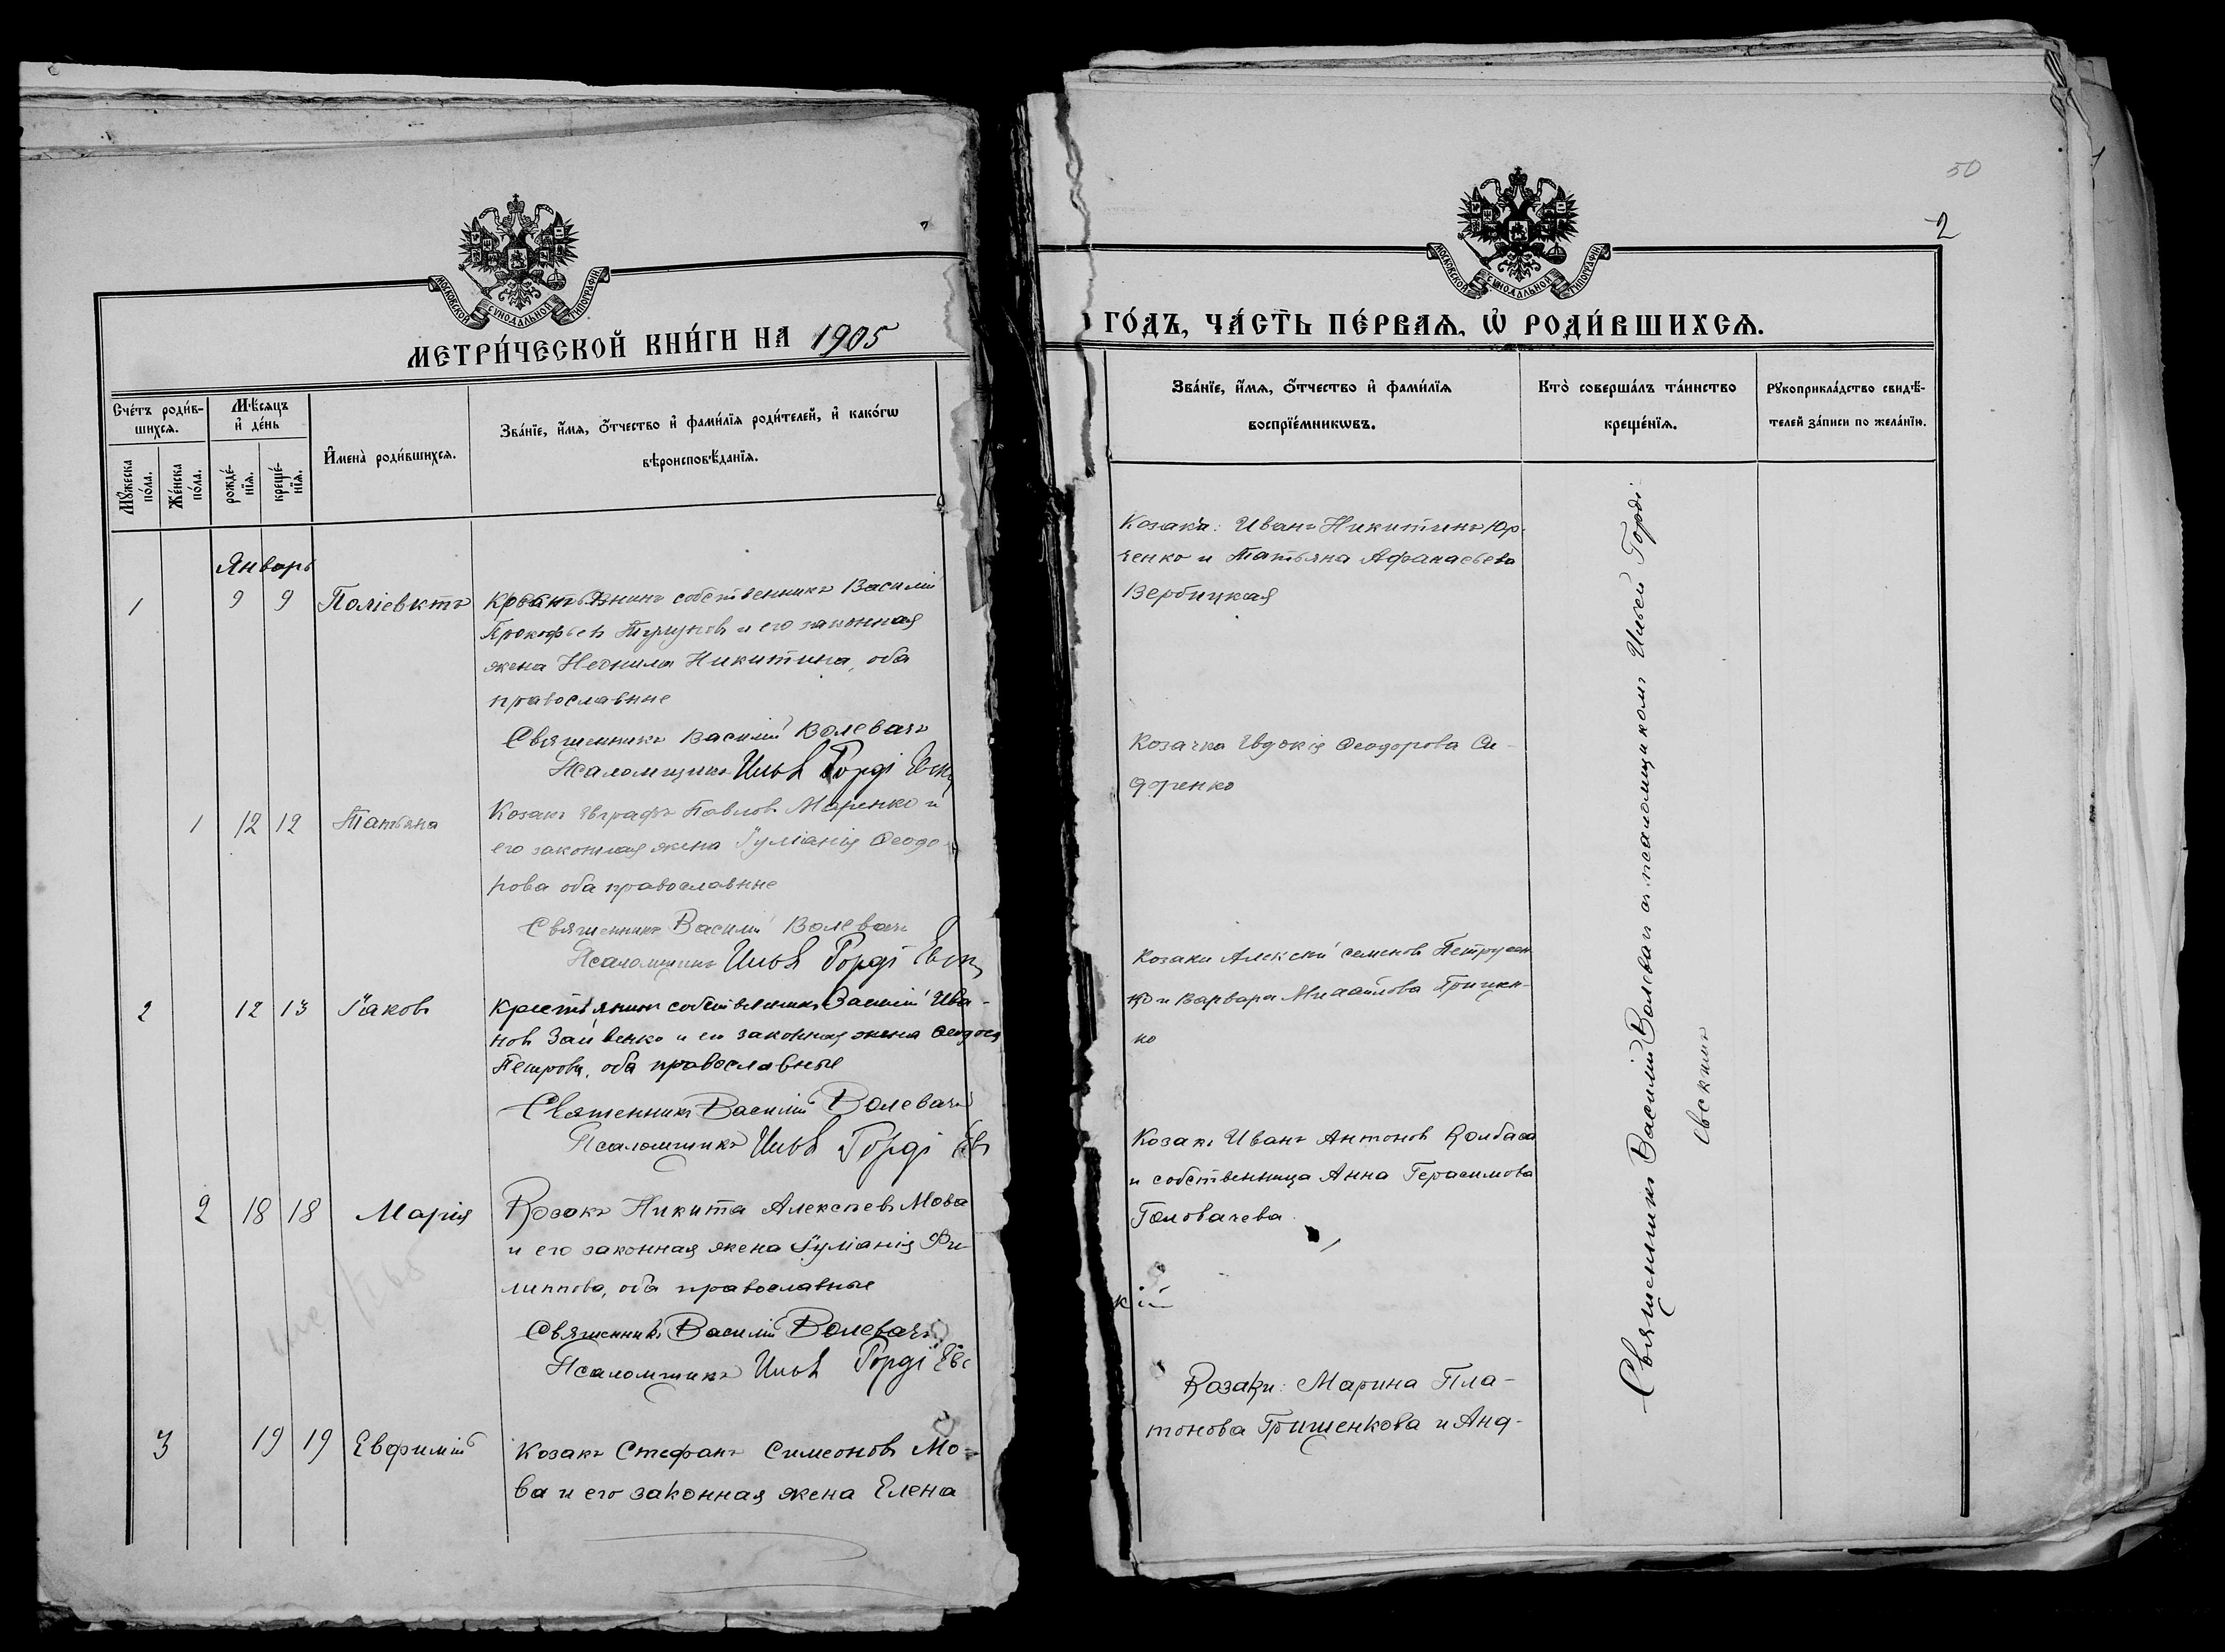 МОСКОВСКОЙ СУНОДАЛЬНОЙ ТИПОГРАФІИ
МЕТРИ́ЧЕСКОЙ КНИ́ГИ НА 1905
Сче́тъ роди́в-
шихсѧ.
Мѣ́сѧцъ
и҆ де́нь
Мꙋ́жеска
по́ла.
Же́нска
по́ла.
рожде́-
нїѧ.
креще́-
нїѧ.
И҆мена̀ роди́вшихсѧ.
Зва́нїе, и҆́мѧ, ѻ҆́тчество и҆ фами́лїѧ роди́телей, и҆ како́гѡ
вѣроисповѣ́данїѧ.
Январь
1 9 9 Поліевктъ Крестьянинъ собственникъ Василій
Прокофьевъ и его законная
жена Неонила Никитина, оба
православные
Священникъ Василій Волевачъ
Псаломщикъ Илья Горді Евск
1 12 12 Татьяна Козакъ Евграфъ Павловъ Маренко и
его законная жена Іуліанія Ѳеодо-
рова оба православные
Священникъ Василій Волевачъ
Псаломщикъ Илья Горді Евск
2 12 13 Іаковъ Крестьянинъ собственникъ Василій Ива-
новъ Заивенко и его законная жена Ѳеодосія
Петрова, оба православные
Священникъ Василій Волевачъ
Псаломщикъ Илья Горді Ев
2 18 18 Марія Козакъ Никита Алексѣевъ Мова
и его законная жена Іуліанія Фи-
липпова, оба православные
Священникъ Василій Волевачъ
Псаломщикъ Илья Горді Евс
3 19 19 Евфимій Козакъ Стефанъ Симеоновъ Мо-
ва и его законная жена Елена
50
2
МОСКОВСКОЙ СУНОДАЛЬНОЙ ТИПОГРАФІИ
ГО́ДЪ, ЧА́СТЬ ПЕ́РВАѦ, Ѽ РОДИ́ВШИХСѦ.
Зва́нїе, и҆́мѧ, ѻ҆́тчество и҆ фами́лїѧ
воспрїе́мникѡвъ.
Кто̀ соверша́лъ та́инство
креще́нїѧ.
Рꙋкоприкла́дство свидѣ́-
телей за́писи по жела́нїю.
Козаки: Иванъ Никитинъ Юр-
ченко и Татьяна Афанасьева
Вербицкая
Козачка Евдокія Ѳеодорова Си-
доренко
Козаки Алексѣй Семеновъ Петрусен
ко и Варвара Михайлова Гриценко-
но
Козакъ Иванъ Антоновъ Колбаса
и собственница Анна Герасимова
Головачева
кій
Козаки: Марина Пла-
тонова Гришенкова и Анд-
Священникъ Василій Волевачъ съ псаломщикомъ Ильей Горді-
Евскимъ